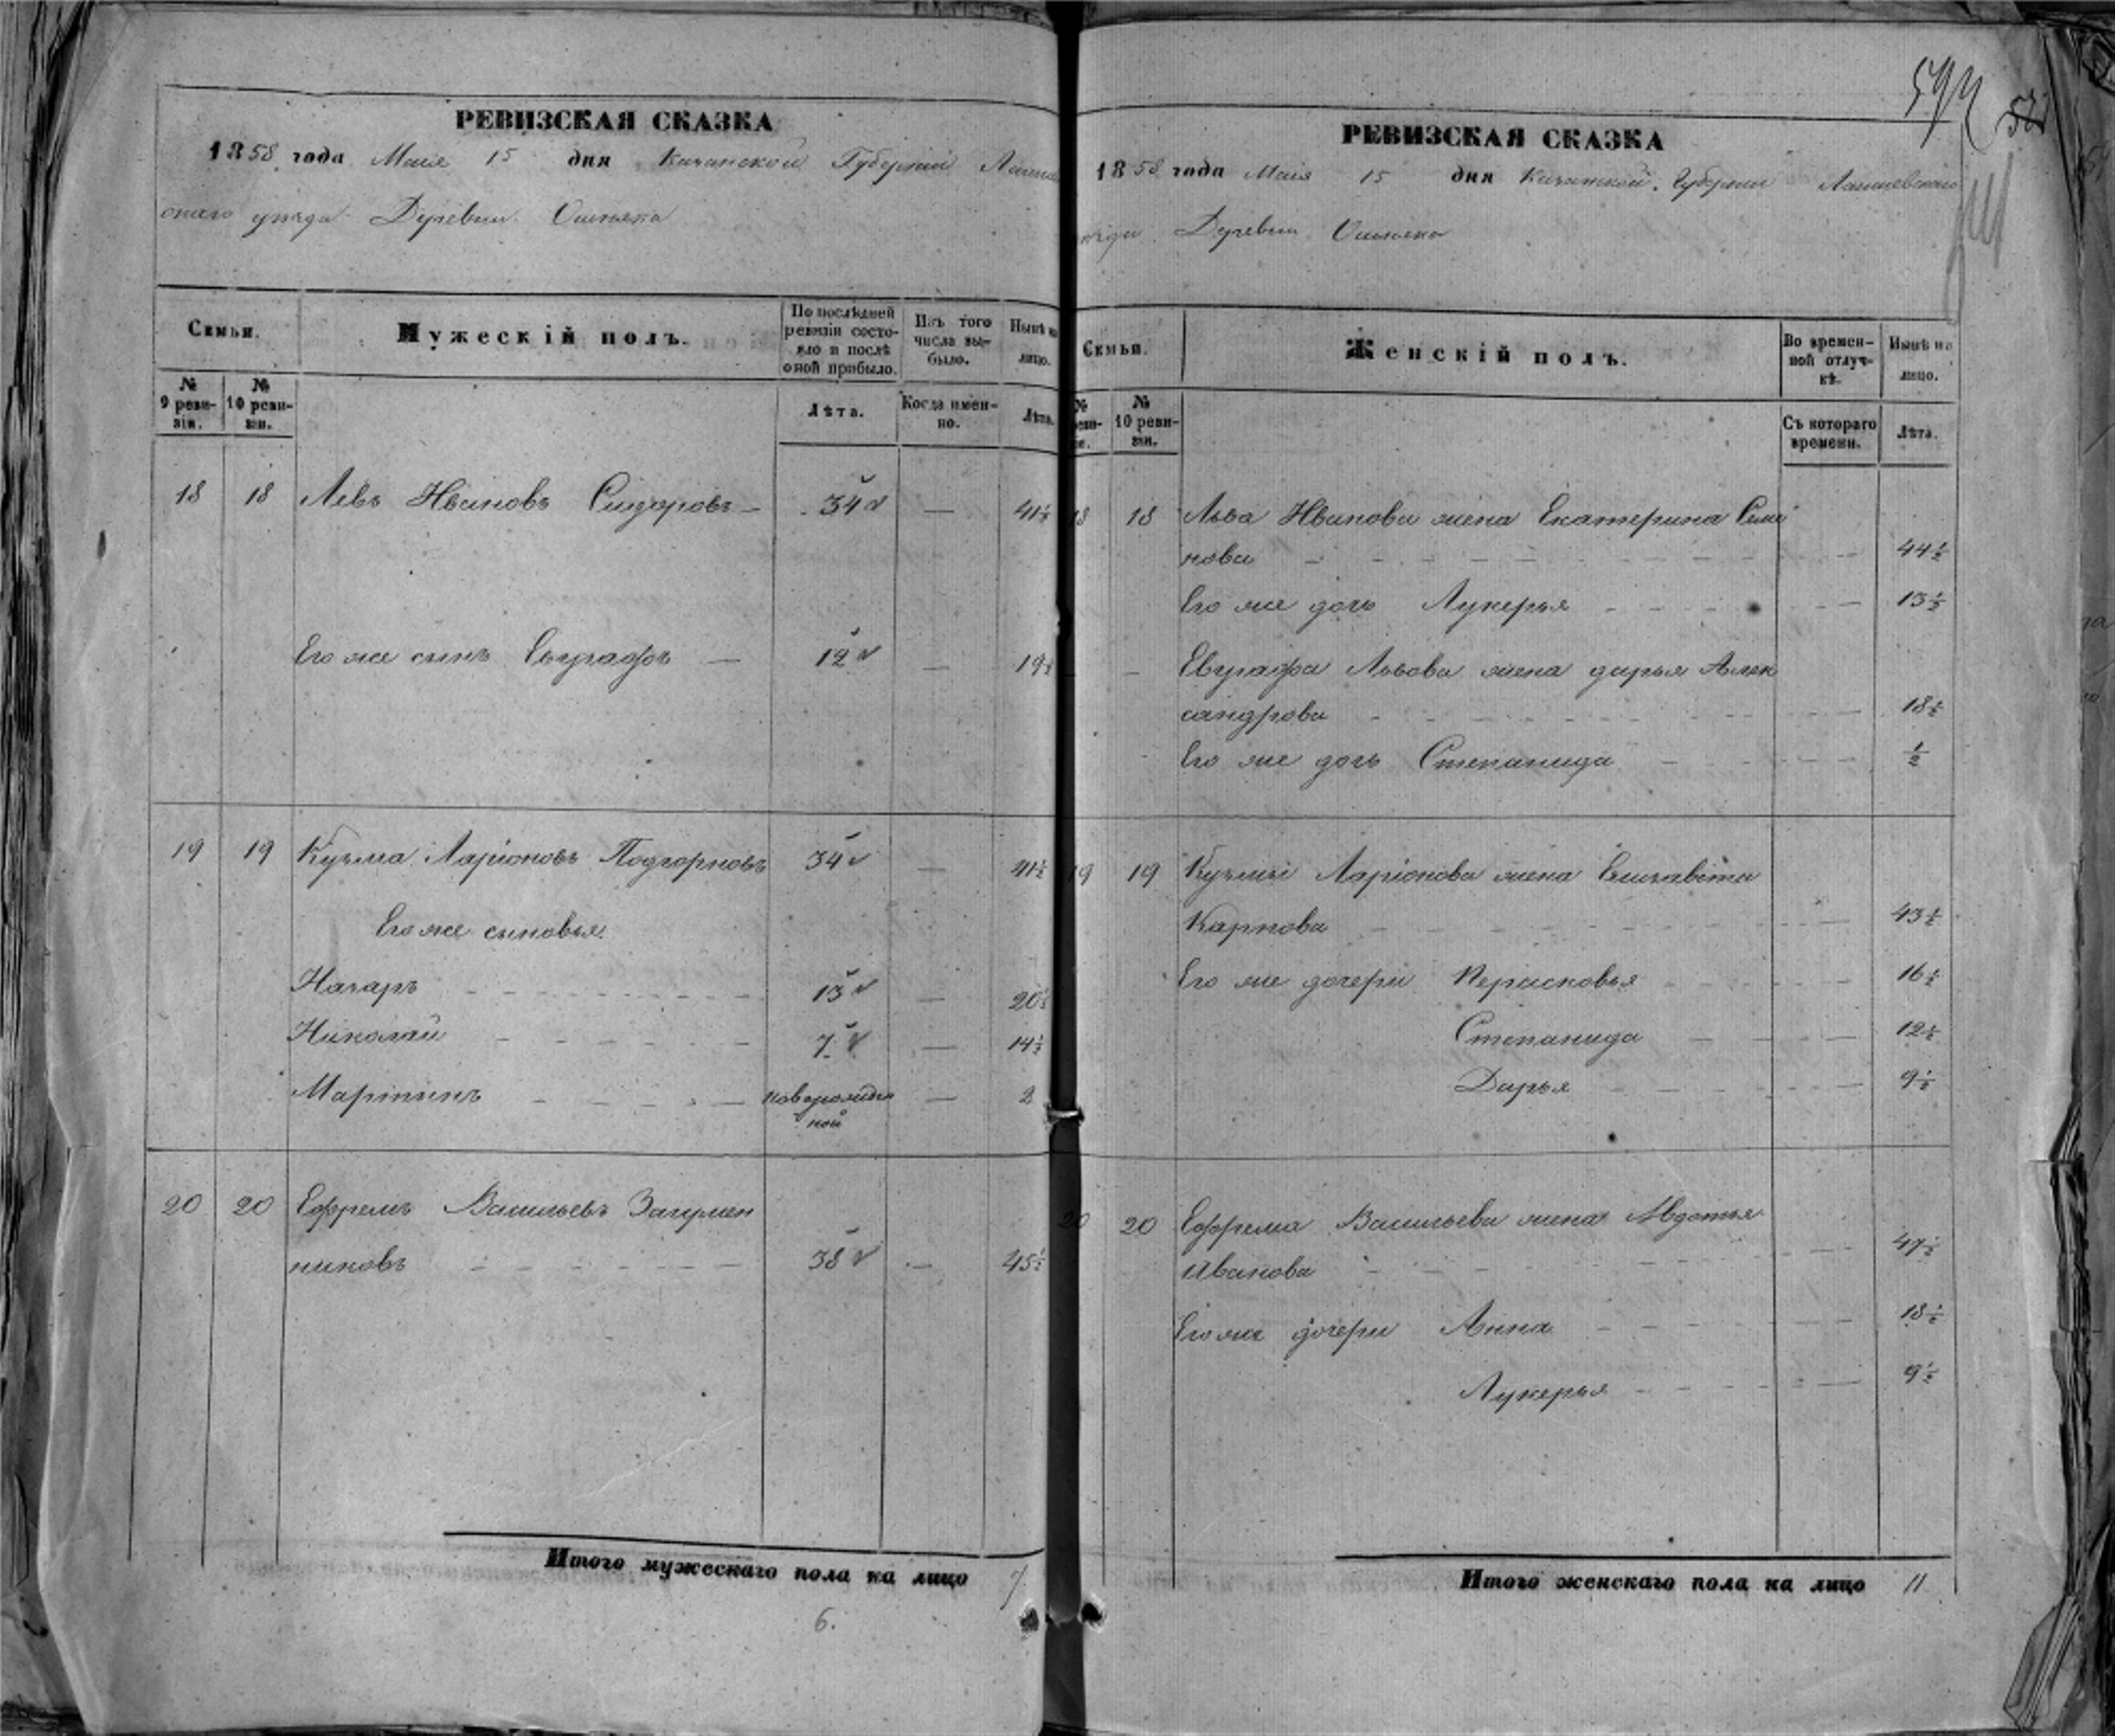 РЕВИЗСКАЯ СКАЗКА
1858 года Маія 15 дня Казанской Губерніи Лаише
скаго уезда Деревни Ошняка
Семьи.
Мужескій полъ.
По послѣдней ревизіи состояло и послѣ оной прибыло.
Изъ того числа выбыло.
Нынѣ на лицо.
№ 9 ревизіи.
№ 10 ревизіи.
Лѣта.
Когда именно.
Лѣта.
18 18 Левъ Ивановъ Сидоровъ 34 41½
Его же сынъ Евграфъ 12 19½
19 19 Кузма Ларіоновъ Подгорновъ 34 41½
Его же сыновья.
Назаръ 13 20½
Николай 7 14½
Мартынъ новорожден 2
ной
20 20 Ефремъ Васильевъ Загумен
никовъ 38 45½
Итого мужескаго пола на лицо 7
6.
592
РЕВИЗСКАЯ СКАЗКА
1858 года Маія 15 дня Казанской Губерніи Лаишевскаго
уезда Деревни Ошняка
Семьи.
Женскій полъ.
Во временной отлучкѣ.
Нынѣ на лицо.
№ 10 ревизіи.
Съ котораго времени.
Лѣта.
18 18 Льва Иванова жена Екатерина Семе
нова 44½
Его же дочь Лукерья 13½
Евграфа Львова жена дарья Алек
сандрова 18½
Его же дочь Степанида ½
19 19 Кузмы Ларіонова жена Елизавета
Карпова 43½
Его же дочери Перасковья 16½
Степанида 12½
Дарья 9½
20 20 Ефрема Васильева жена Авдотья
Иванова 47½
Его же дочери Анна 18½
Лукерья 9½
Итого женскаго пола на лицо 11